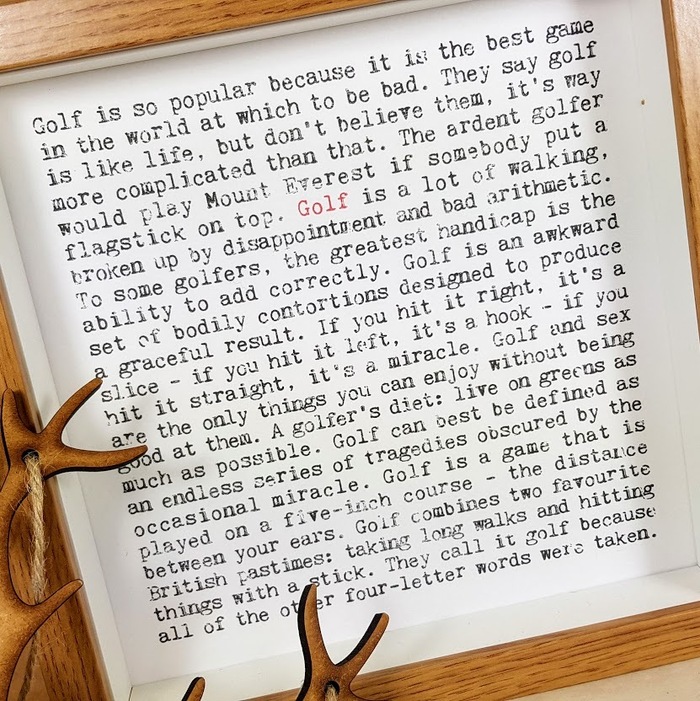 Golf is so popular because it is the best game
in the world at which to be bad. They say golf
is like life, but don't believe them, it's way
more complicated than that. The ardent golfer
would play Mount Everest if somebody put a
flagstick on top. Golf is a lot of walking,
broken up by disappointment and bad arithmetic.
To some golfers, the greatest handicap is the
ability to add correctly. Golf is an awkward
set of bodily contortions designed to produce
a graceful result. If you hit it right, it's a
slice - if you hit it left, it's a hook - if you
hit it straight, it's a miracle. Golf and sex
are the only things you can enjoy without being
good at them. A golfer's diet: live on greens as
much as possible. Golf can best be defined as
an endless series of tragedies obscured by the
occasional miracle. Golf is a game that is
played on a five-inch course - the distance
between your ears. Golf combines two favourite
British pastimes: taking long walks and hitting
things with a stick. They call it golf because
all of the other four-letter words were taken.